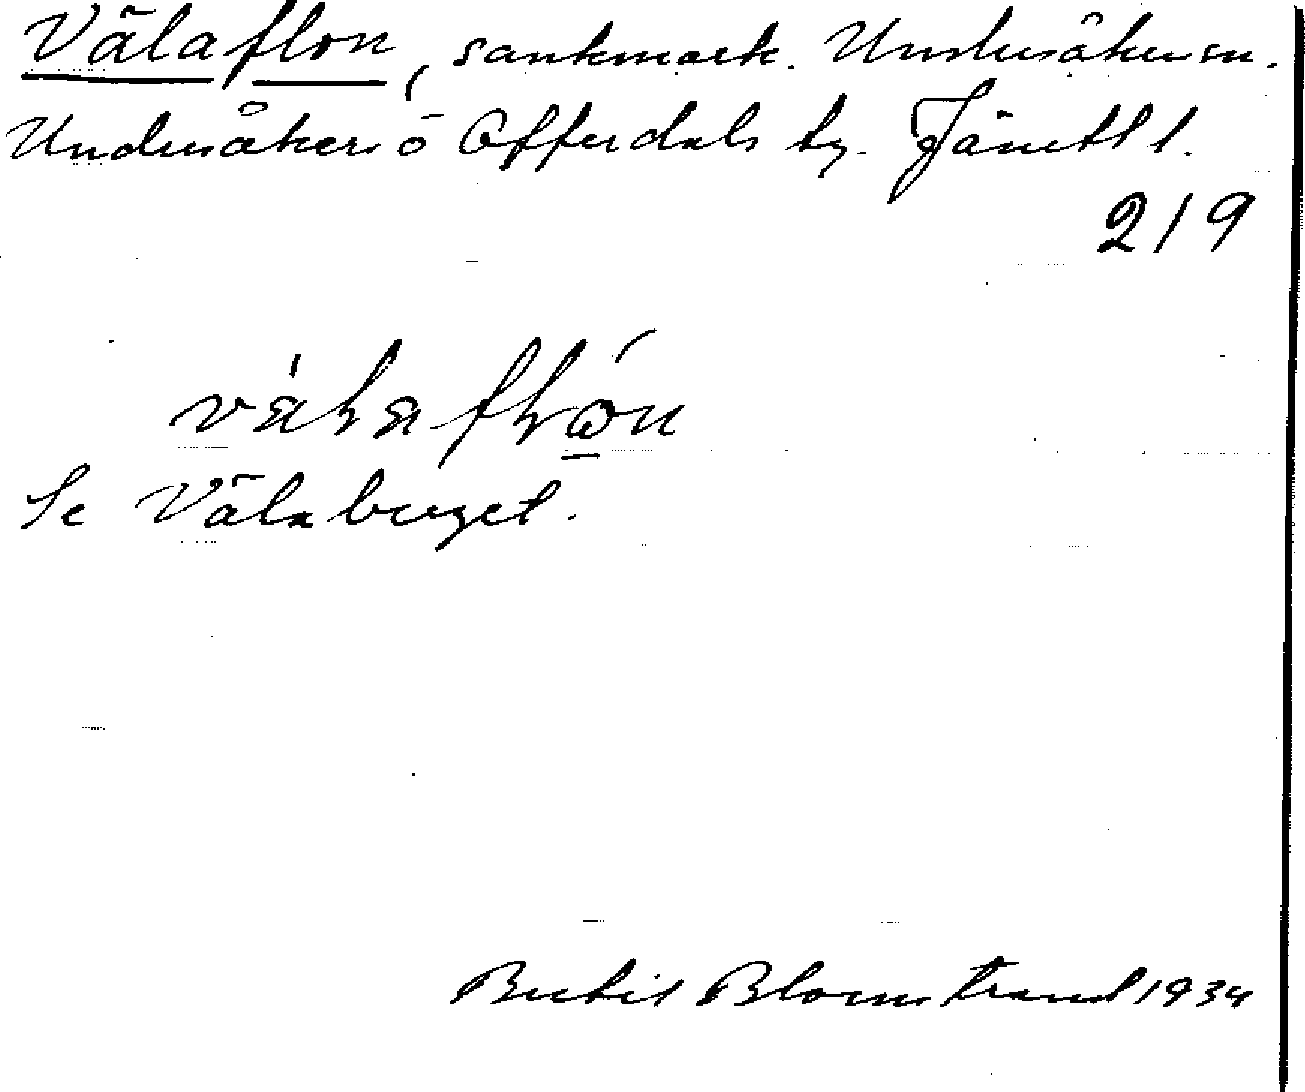 Välaflon, sankmark. Undersåker sn.
Undersåkers o Offerdals tg. Jämtl l.
219
Se Välaberget.
Bertil Blomstrand 1934